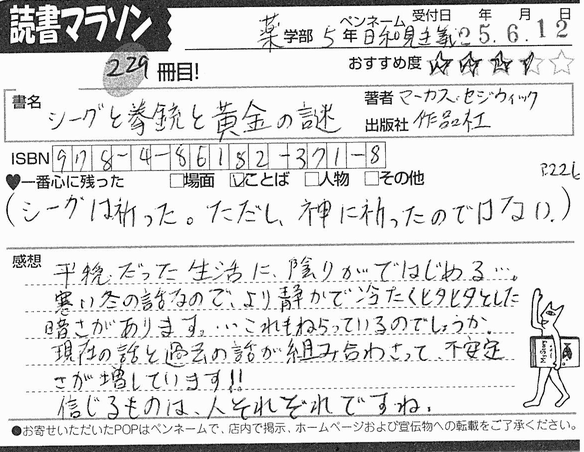 読書マラソン
薬学部 5年 ペンネーム 日和見主義 受付日 25年6月12日
229冊目!
おすすめ度 ☆☆☆☆☆
書名 シーグと拳銃と黄金の謎
著者 マーカス・セジウィック
出版社 作品社
ISBN 978-4-86182-371-8
♥一番心に残った □場面 ☑ことば □人物 □その他
P.226
(シーグは祈った。ただし、神に祈ったのではない。)
感想
平穏だった生活に、陰りがではじめる…。
寒い冬の話なので、より静かで冷たくヒタヒタとした
暗さがあります。…これもねらっているのでしょうか。
現在の話と過去の話が組み合わさって、不安定
さが増しています!!
信じるものは、人それぞれですね。
●お寄せいただいたPOPはペンネームで、店内で掲示、ホームページおよび宣伝物への転載をご了承ください。